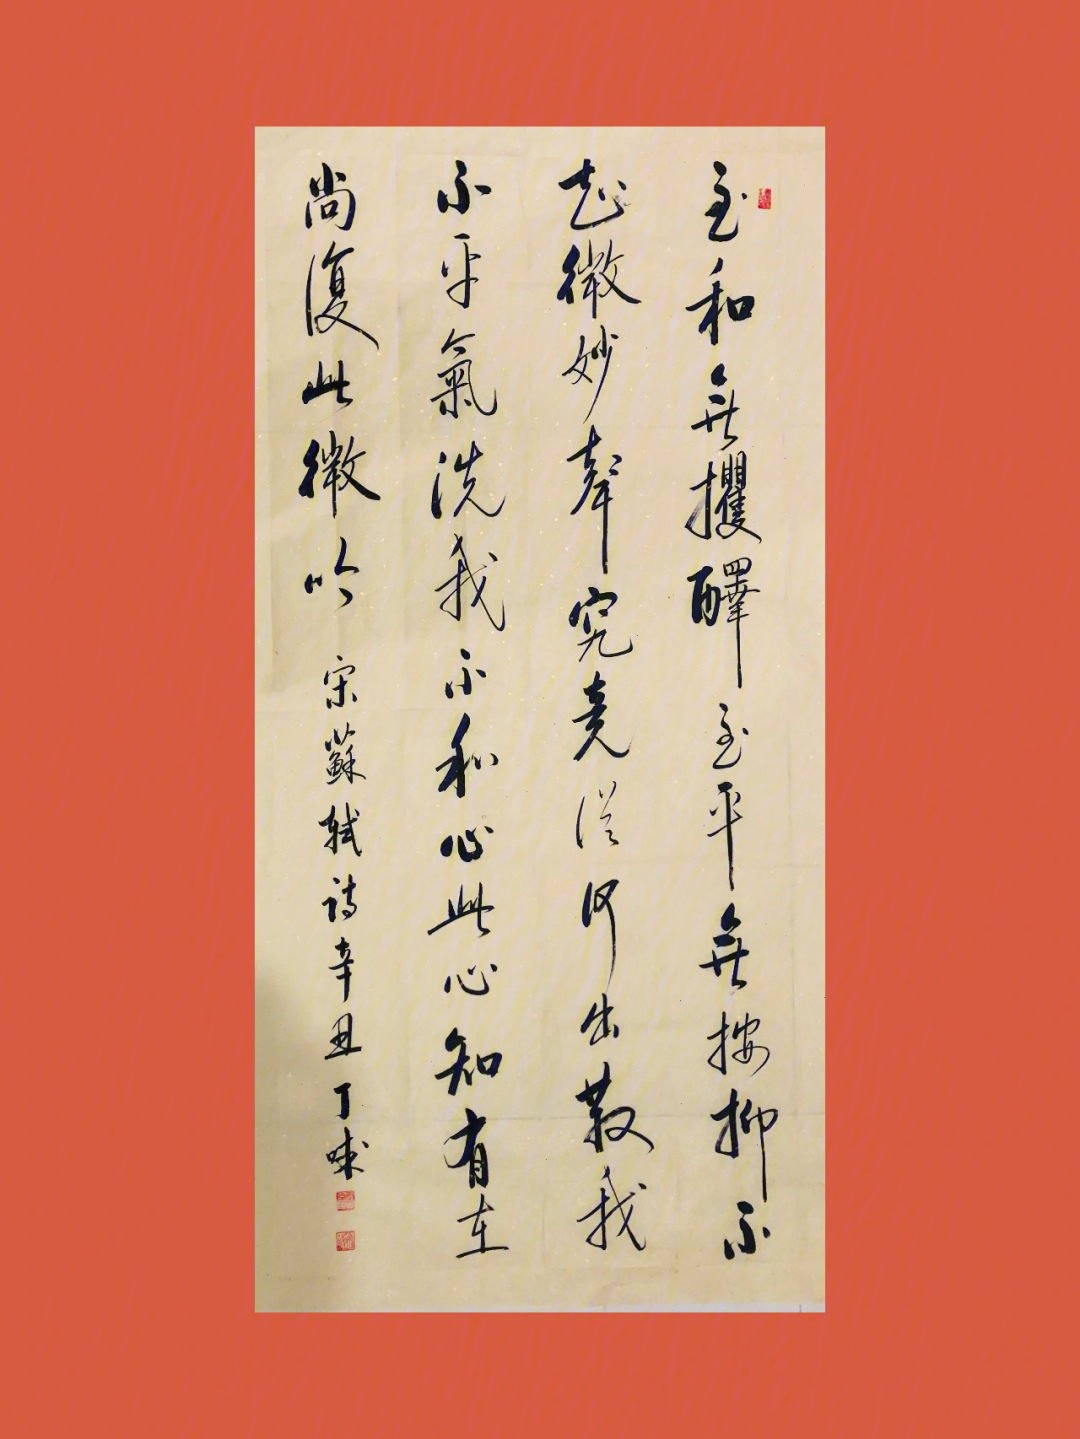 至和無攫醳至平無按抑不
起微妙聲究竟從何出散我
不平氣洗我不和心此心知有在
尚復此微吟 宋蘇軾詩辛丑丁